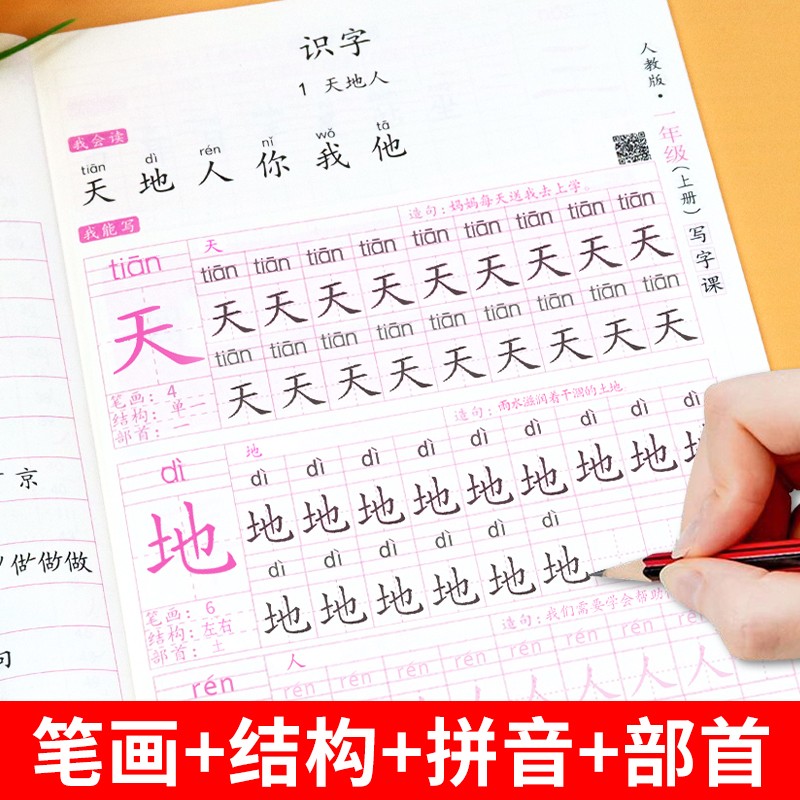 识字
1 天地人
我会读
tiān dì rén nǐ wǒ tā
天 地 人 你 我 他
我能写
人教版·一年级(上册)写字课
tiān
天
造句:妈妈每天送我去上学。
tiān tiān tiān tiān tiān tiān tiān tiān tiān
天
天 天 天 天 天 天 天 天 天
tiān tiān tiān tiān tiān tiān tiān tiān tiān
天 天 天 天 天 天 天 天 天
笔画:4
结构:单一
部首:一
dì
地
造句:雨水滋润着干涸的土地
dì dì dì dì dì dì dì dì
地
地 地 地 地 地 地 地 地 地
dì dì dì dì dì dì
地 地 地 地 地 地
笔画:6
结构:左右
部首:土
rén
人
造句:我们需要学会帮助
rén rén rén rén rén rén rén
人 人 人 人
京
做做做
句
笔画+结构+拼音+部首